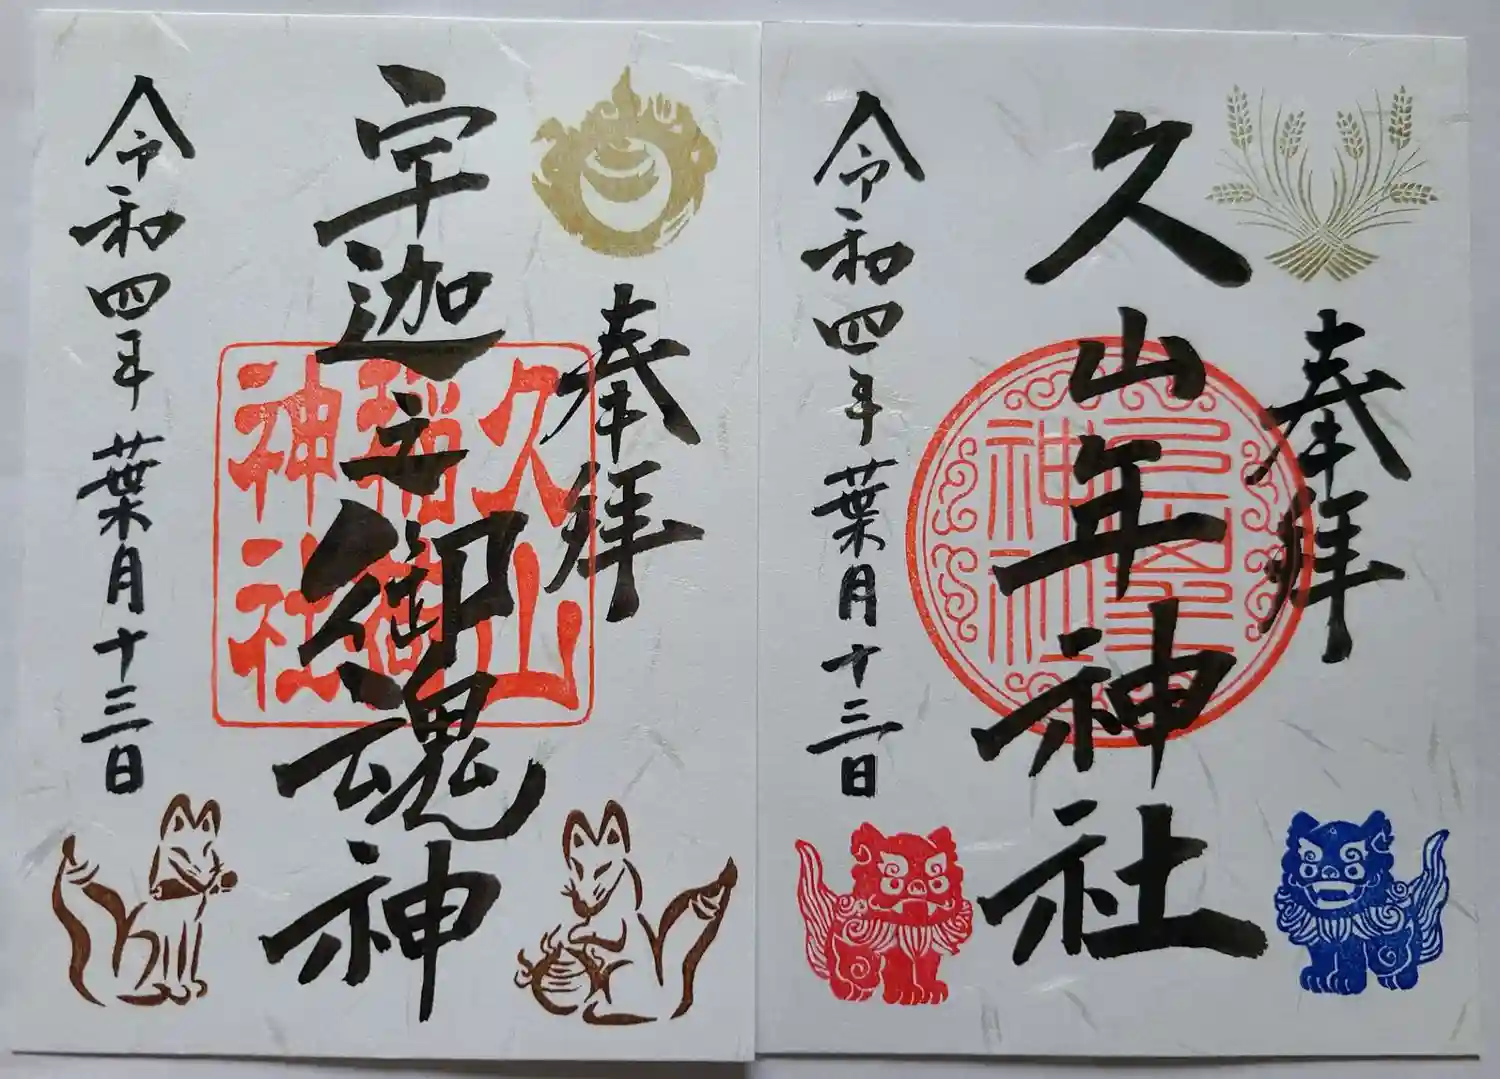 奉拝
久山年神社
令和四年葉月十三日
奉拝
宇迦之御魂神
令和四年葉月十三日
久山
稲荷
神社